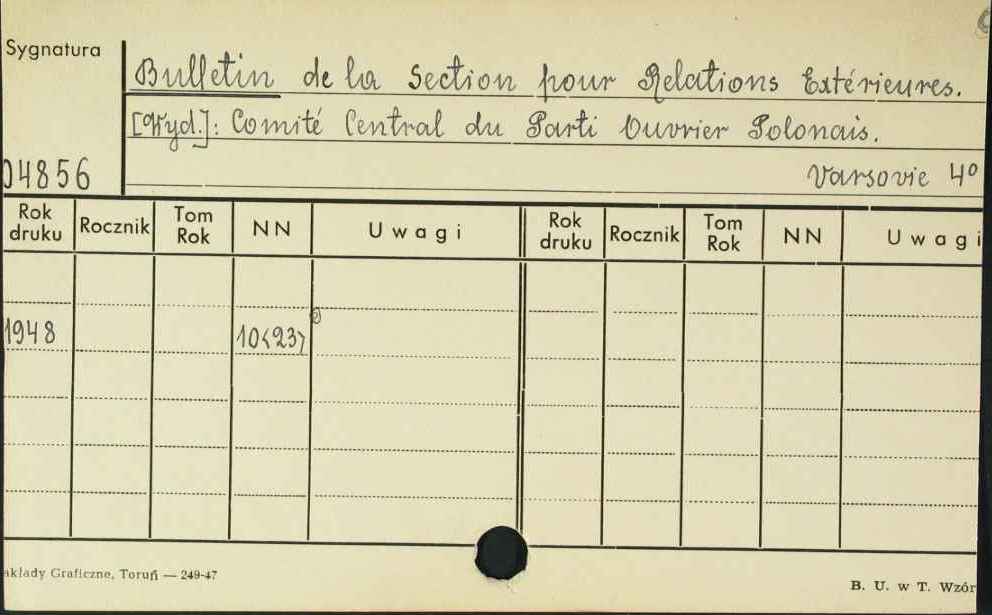 Sygnatura
Bulletin de la Section pour Relations Extérieures.
[Wyd.]: Comité Central du Parti Ouvrier Polonais.
04856
Varsovie 4º
Rok druku Rocznik Tom Rok NN Uwagi Rok druku Rocznik Tom Rok NN Uwagi
1948 10<23>
akłady Graficzne, Toruń — 249-47
B. U. w T. Wzór